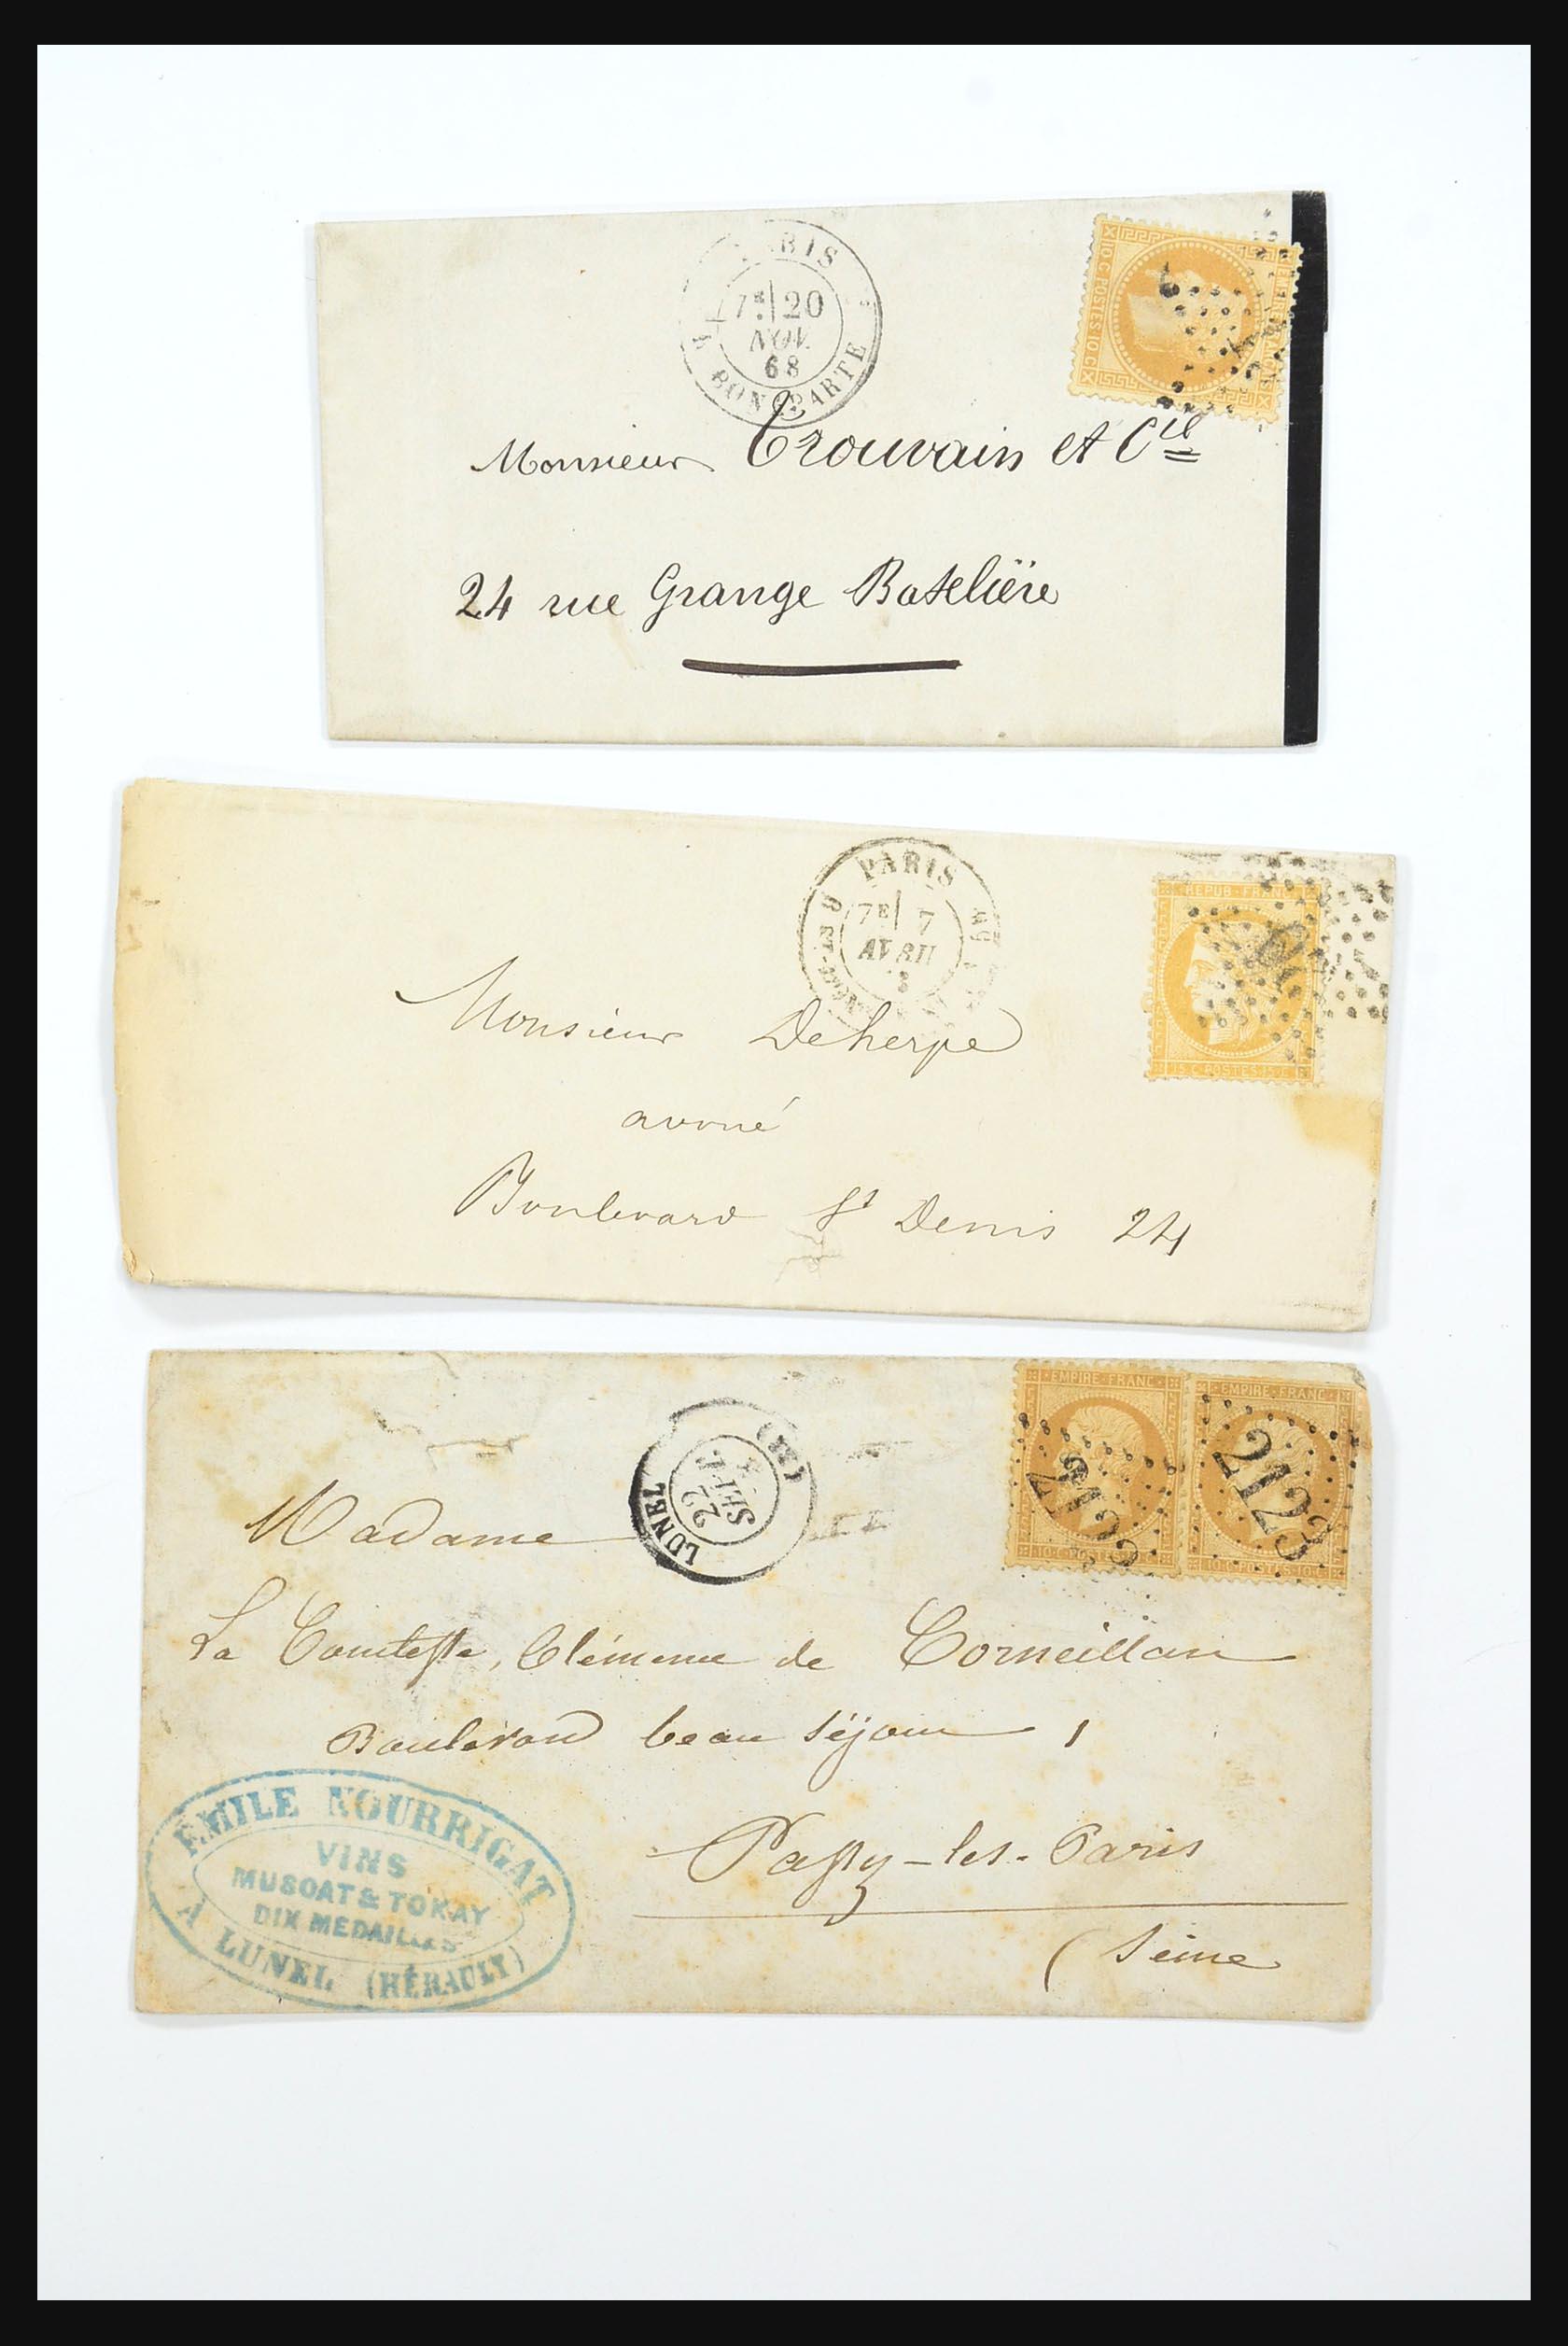 PARIS
7E 20
NOV.
68
R. BONAPARTE
EMPIRE FRANÇAIS
10 C POSTES 10 C
Monsieur Trouvain et Cie
24 rue Grange Batelière
PARIS
7E 7
AVRIL
REPUB · FRANC
15 C · POSTES · 15 C
Monsieur Deherpe
avoué
Boulevard St Denis 24
LUNEL (33)
22
SEPT
EMPIRE · FRANC
10 · C · POSTES · 10 · C
2123
EMPIRE · FRANC
10 · C · POSTES · 10 · C
2123
Madame
La Comtesse, Clémence de Corneillan
Boulevard beau Séjour 1
Passy-les-Paris
(Seine
ÉMILE NOURRIGAT
VINS
MUSCAT & TOKAY
DIX MEDAILLES
A LUNEL (HÉRAULT)